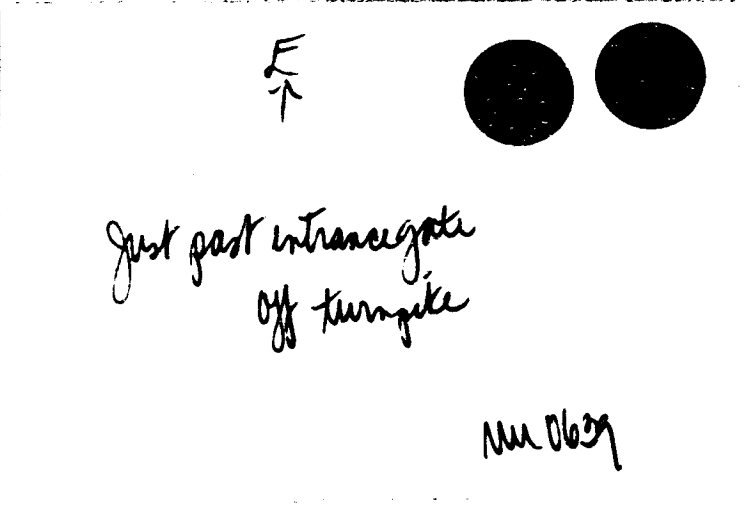 E
↑
Just past entrance gate
off turnpike
MM 0639